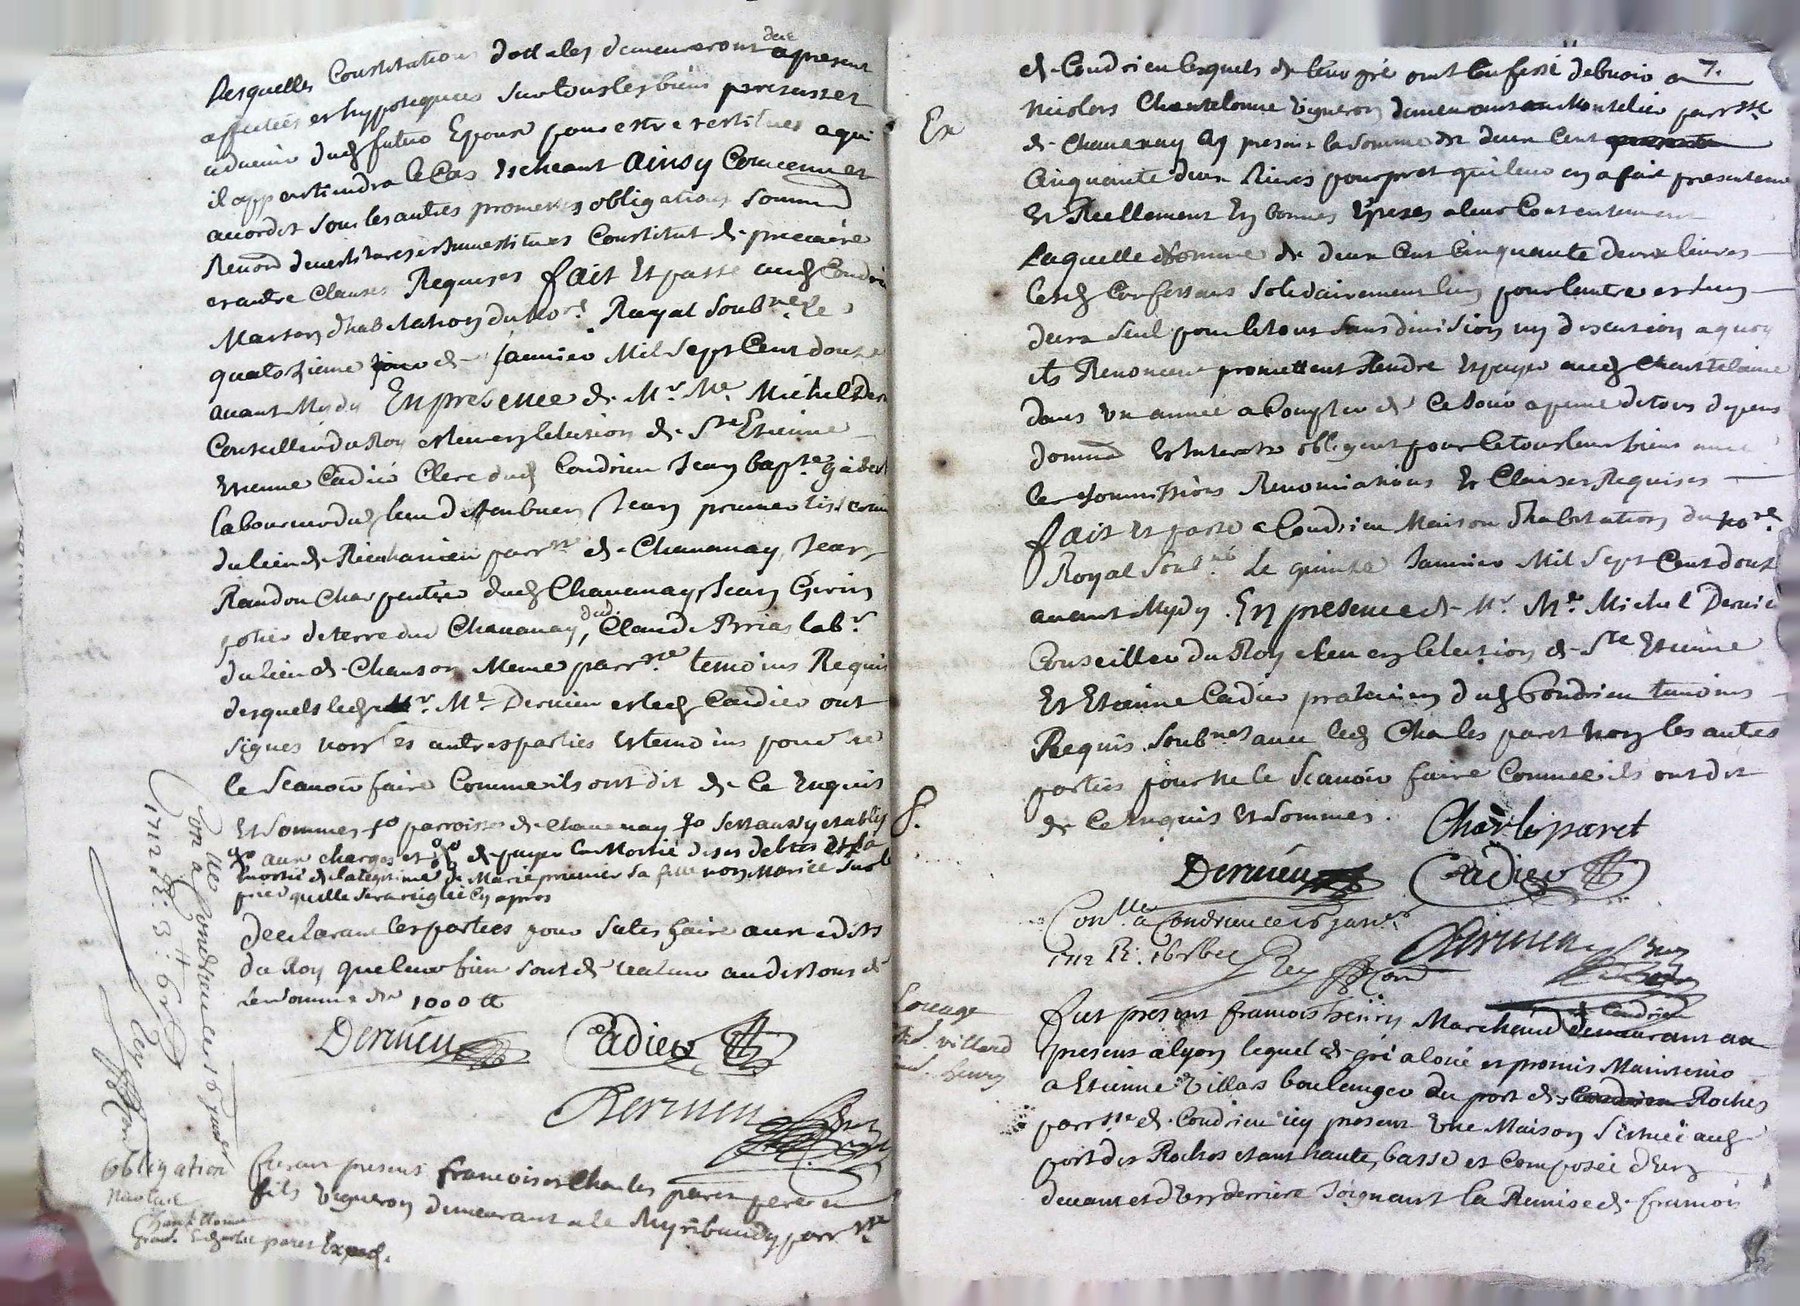 Lesquelles Constitution dottales demeureront des apresent
affectées et hypotequées sur tous les biens presans et
advenir dud futur Epoux pour estre restitues a qui
il appartiendra le Cas escheant Ainsy Convenu et
accordé sous les autres promesses obligations soumond
Renond devestitures investitures Constitut de precaire
et autre Clauses Requises fait Et passé aud Condrieu
Maison dhabitation du No.re Royal soub.né Le
quatorzieme jour de Janvier Mil Sept Cent douze
avant Mydy En presence de M.r M.e Michel Der
Conseiller du Roy esleu en lelection de S.te Etienne
Etienne Cadier Clerc dud Condrieu Jean bap.te gabert
laboureur du lieu de Jean prunier tisseran
du lieu de parr.se de Chavanay, Jean
Randon Charpentier dud Chavanay, Jean Gerin
potier de terre dud Chavanay, Claude Brias lab.r
du lieu de Chanson Meme parr.sse temoins Requis
desquels led M.r M.e Dervieu et led Cadier ont
signes non les autres parties Et temoins pour ne
le Scavoir faire Comme ils ont dit de Ce Enquis
Et sommes parroisse de Chavanay
aux charges et de payer la Moitié de ses debtes et la
moitié de la legitime de Marie prunier sa fille non Mariée sur le
pied quelle sera reglée cy apres
Declarant les parties pour Satisfaire aux edits
du Roy que leur bien sont de valeur audessous de
la somme de 1000 tt
Dervieu Cadier
Dervieu
Con.lle a Condrieu ce 16 janv.er
1712
obligation
Nicolas
Chantelonne
Exped.
Furent presens francois et Charles paret pere et
fils Vigneron demeurant a le Myribaudy parr.sse
de Condrieu lesquels de leur gré ont Confessé debvoir a 7.
Ex
Nicolas Chantelonne Vigneron demeurant au Montelier parr.sse
de Chavanay icy present la somme de deux Cent
Cinquante deux livres pour pret qu'il leur en a fait presentement
Et Reellement En bonnes Especes a leur Contentement
Laquelle Somme de deux Cent Cinquante deux livres
lesd Confessans Solidairement lun pour lautre et lun
deux seul pour le tout sans division ny discution a quoy
ils Renoncent promettent Rendre Et payer aud Chantelonne
dans un année a Compter de Ce Jour a peine de tous depens
domm Et Interets obligent pour le tout leur biens avec
les soumissions Renonciations Et Clauses Requises
fait Et passé a Condrieu Maison dhabitation du No.re
Royal Soub.né Le quinze Janvier Mil Sept Cent douze
avant Mydy. En presence de M.r M.e Michel Dervieu
Conseiller du Roy esleu en lelection de S.te Etienne
Et Etienne Cadier praticien dud Condrieu temoins
Requis Soub.nes avec led Charles paret non les autres
parties pour ne le Scavoir faire Comme ils ont dit
8.
de Ce Enquis Et Sommes.
Charle paret
Dervieu Cadier
Con.lle a Condrieu ce 16 janv.er
1712
Dervieu
Louage
villard
henry
de Condrieu
Fut present francois henry Marchand demeurant au
present a lyon lequel de gré a loué et promis Maintenir
a Etienne Villars boulanger du port des Roches
parr.sse de Condrieu icy present Une Maison Située aud
port des Roches etant haute, basse et Composée d'un
devant et d'un derriere Joignant la Remise de francois